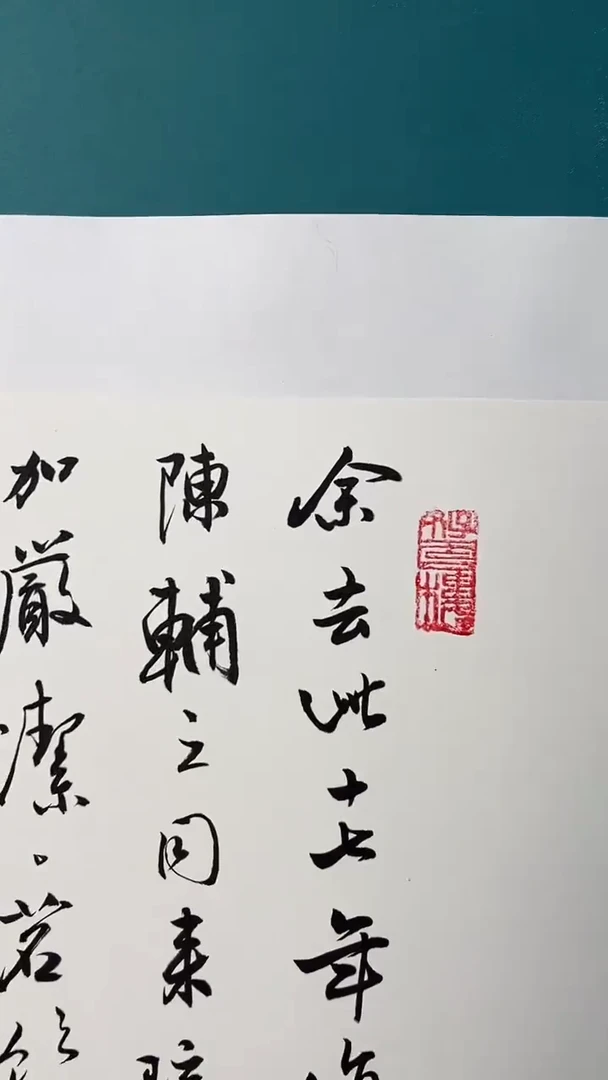 余去此十七年
陳輔之同来
加嚴潔。茗飲